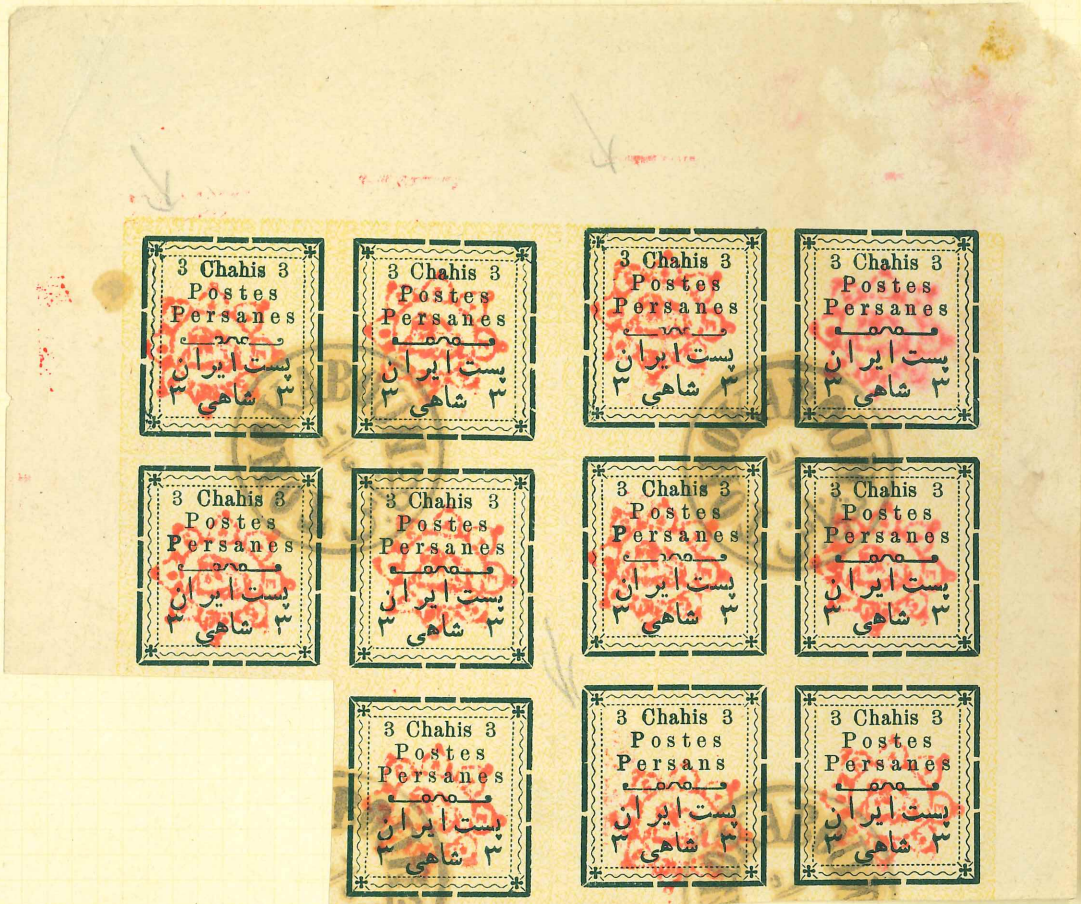 3 Chahis 3
Postes
Persanes
پست ایران
۳ شاهی ۳
3 Chahis 3
Postes
Persanes
پست ایران
۳ شاهی ۳
3 Chahis 3
Postes
Persanes
پست ایران
۳ شاهی ۳
3 Chahis 3
Postes
Persanes
پست ایران
۳ شاهی ۳
3 Chahis 3
Postes
Persanes
پست ایران
۳ شاهی ۳
3 Chahis 3
Postes
Persanes
پست ایران
۳ شاهی ۳
3 Chahis 3
Postes
Persanes
پست ایران
۳ شاهی ۳
3 Chahis 3
Postes
Persanes
پست ایران
۳ شاهی ۳
3 Chahis 3
Postes
Persanes
پست ایران
۳ شاهی ۳
3 Chahis 3
Postes
Persans
پست ایران
۳ شاهی ۳
3 Chahis 3
Postes
Persanes
پست ایران
۳ شاهی ۳